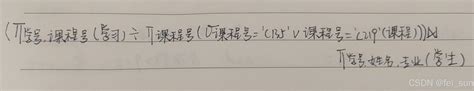 (π学号,课程号(学习)÷π课程号(σ课程号='C135'∨课程号='C219'(课程)))⋈
π学号,姓名,专业(学生)
CSDN @fei_sun